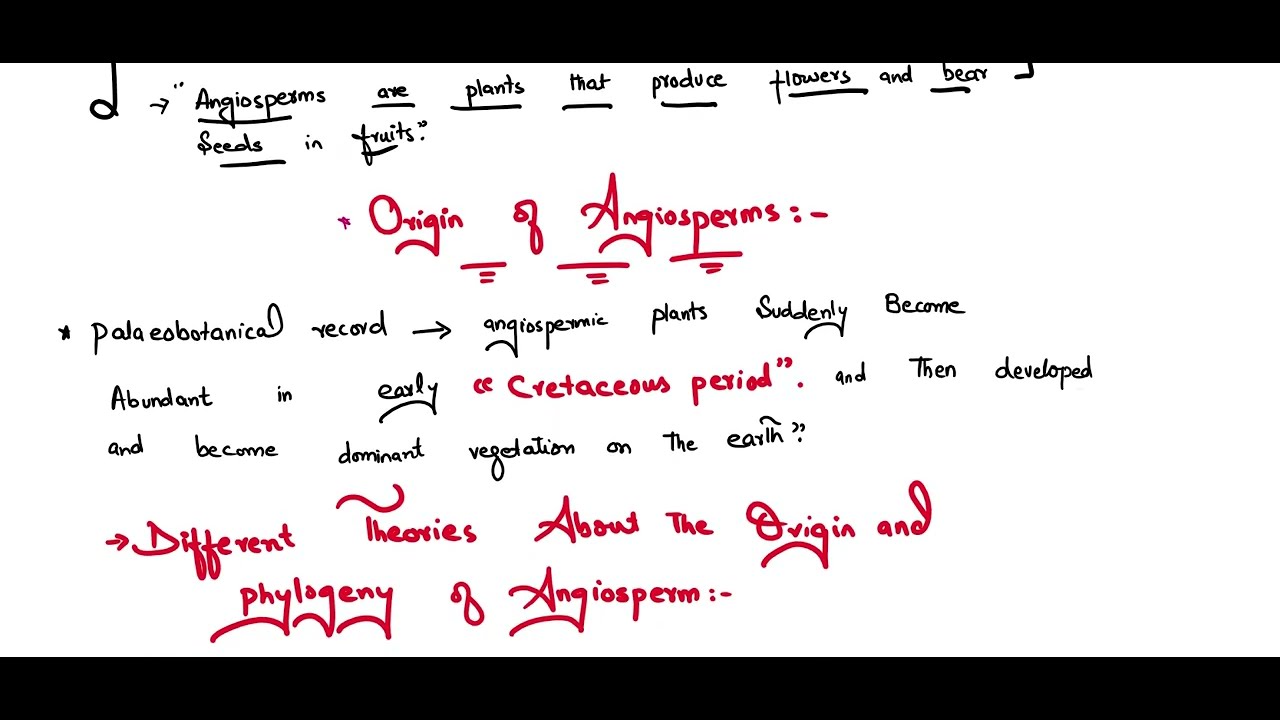 → "Angiosperms are plants that produce flowers and bear
Seeds in fruits."
* Origin of Angiosperms:-
* Palaeobotanical record → angiospermic plants Suddenly Become
Abundant in early "Cretaceous period". and Then developed
and become dominant vegetation on The earth"
→ Different Theories About The Origin and
phylogeny of Angiosperm:-